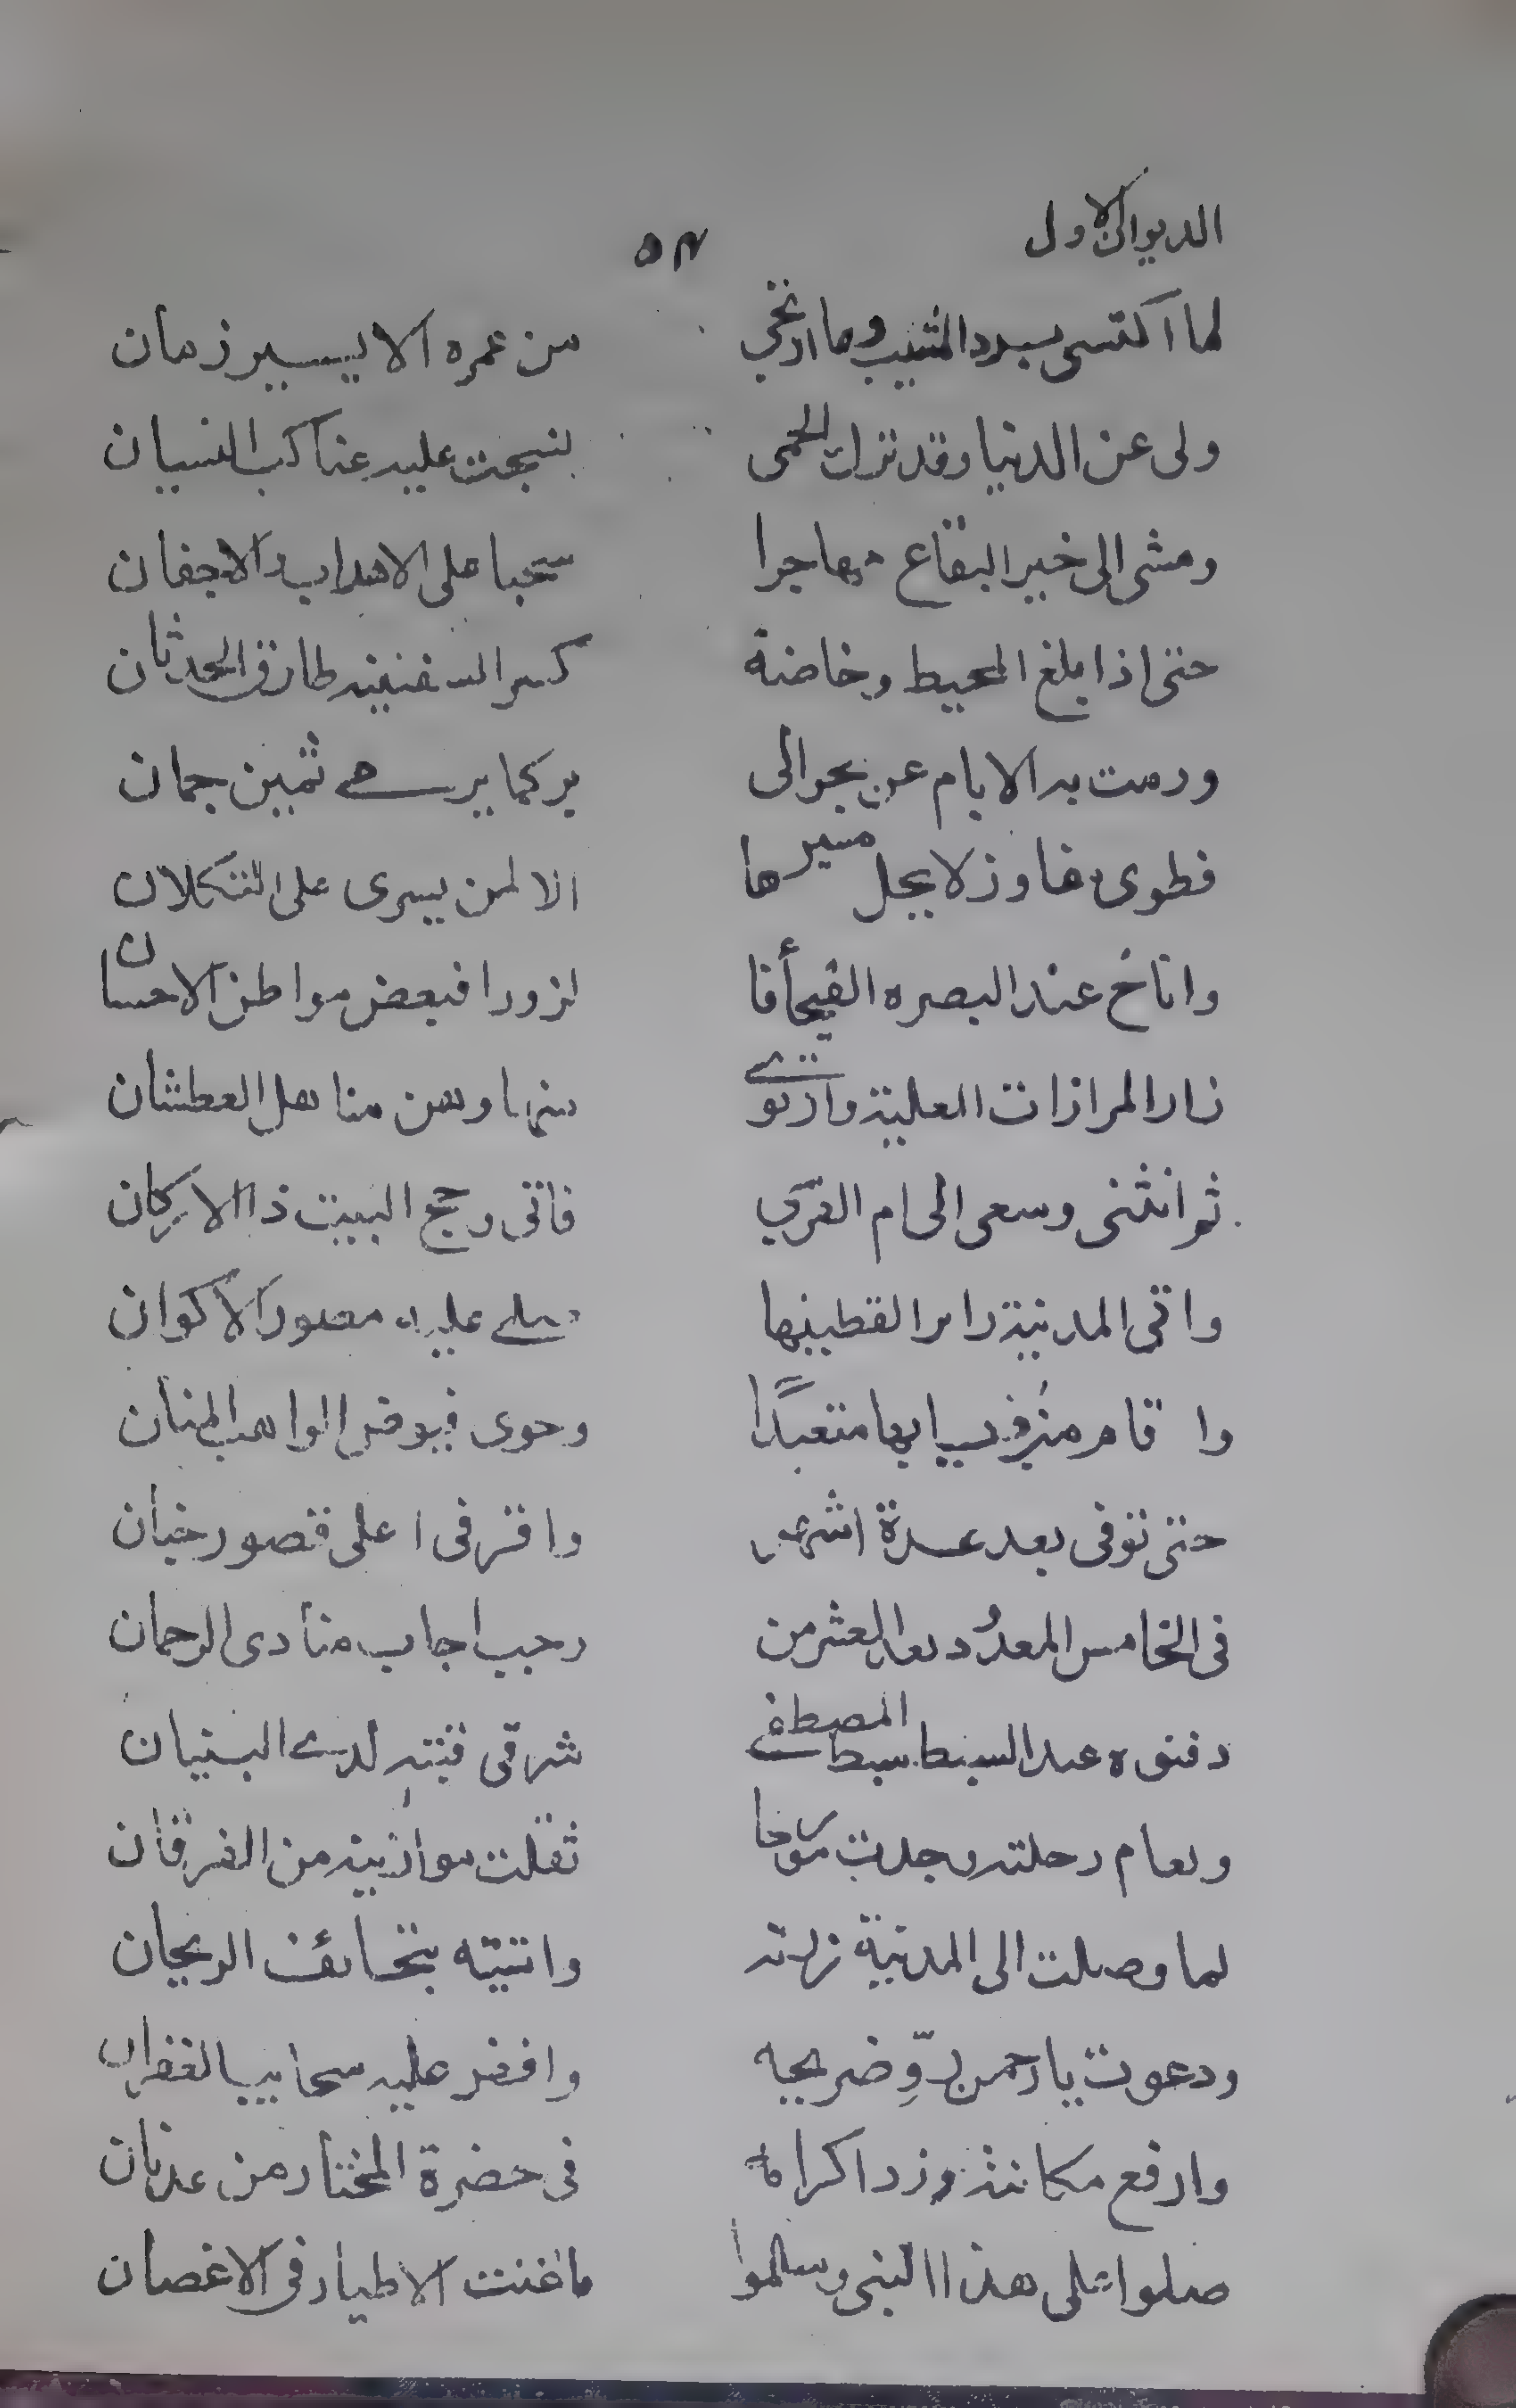 الديوان الاول ٥٣
لما اكتسى ببرد المشيب وما ارتخي من عمره الا يسير زمان
ولى عن الدنيا وقد ترك الحمى نسجت عليه عناكب النسيان
ومشى الى خير البقاع مهاجرا سحبا على الاهداب والاجفان
حتى اذا بلغ المحيط وخاضه كسر السفينه طارق الحدثان
ورمت به الايام عن بحر الى بر كما يرمے ثمين جمان
فطوى مفاوز لا يحل مسيرها الا لمن يسرى على التكلان
واناخ عند البصره الفيحأ فا لزورا فبعض مواطن الاحسان
زار المزارات العلية وارتوے منها وهن مناهل العطشان
ثم انثنى وسعى الى ام القرى فاتى وحج البيت ذا الاركان
واتى المدنية زايرا لقطينها صلے عليه مصور الاكوان
واقام فى ابها متعبدًا وحوى فيوض الواهب المنان
حتى توفى بعد عدة اشهر واقر فى اعلى قصور جنان
فى الخامس المعدُود بعد العشر من رجب اجاب منادى الرحمان
دفنوه عند السبط سبط المصطفے شرقى قبته لدے البنيان
وبعام رحلته وجدت مورخا ثقلت موازينه من الفرقان
لما وصلت الى المدنية زرته واتيته بتحائف الريحان
ودعوت يا رحمن روِّ ضريحه وافض عليه سحايب الغفران
وارفع مكانته وزد اكرامه فى حضرة المختار من عدنان
صلوا على هذا النبى وسلموا ما غنت الاطيار فى الاغصان